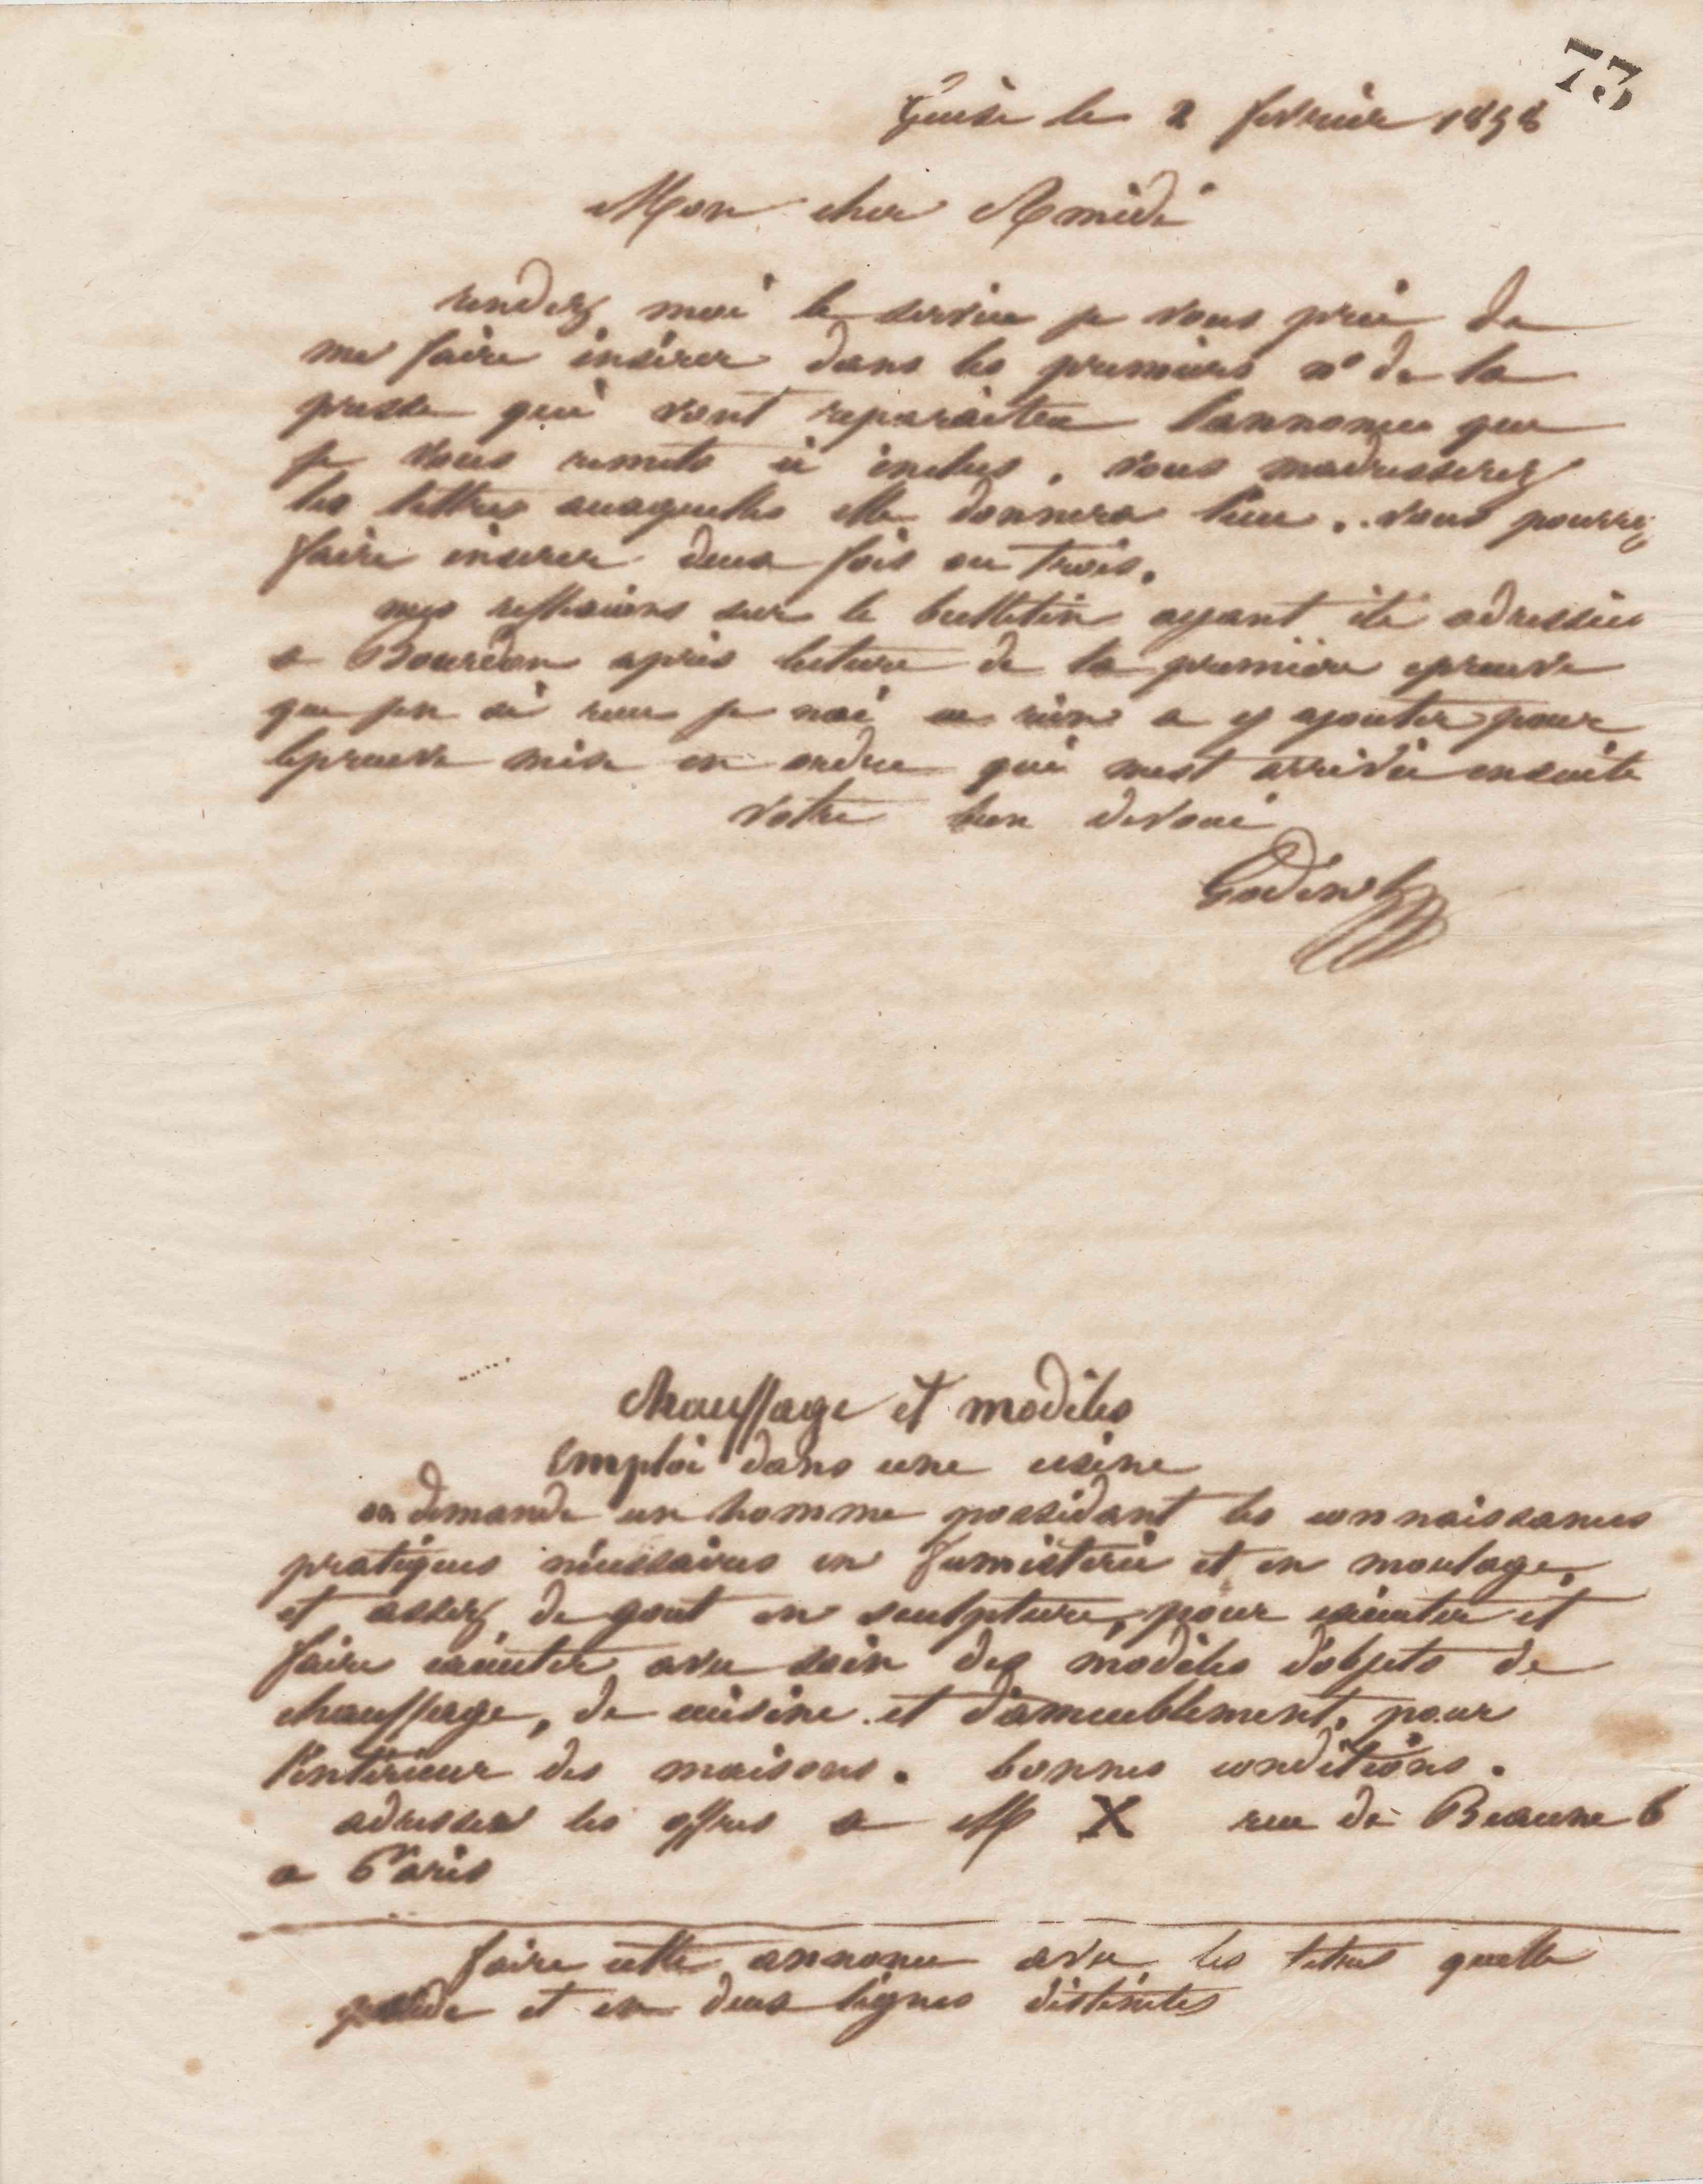 73
Guise le 2 fevrier 1858
Mon cher Amédé
rendez moi le service je vous prie de
me faire insérer dans les premiers nº de la
presse qui vont reparaitre lannonce que
je vous remets ci inclus. vous madresserez
les lettres auxquelles elle donnera lieu. vous pourrez
faire inserer deux fois ou trois.
mes reflexions sur le bulletin ayant été adressées
a Bourdon apres lecture de la premiere epreuve
que jen ai reçu je nai eu rien a y ajouter pour
lepreuve mise en ordre qui mest arrivée ensuite
votre bien devoué
Godin
chauffage et modèles
Emploi dans une usine
on demande un homme possédant les connaissances
pratiques nécessaires en fumisterie et en moulage,
et assez de gout en sculpture, pour exécuter et
faire exécuter avec soin des modèles d'objets de
chauffage, de cuisine et d'ameublement, pour
l'intérieur des maisons. bonnes conditions.
adresser les offres a M X rue de Beaune 6
a Paris
faire cette annonce avec les titres quelle
possède et en deux lignes distinctes